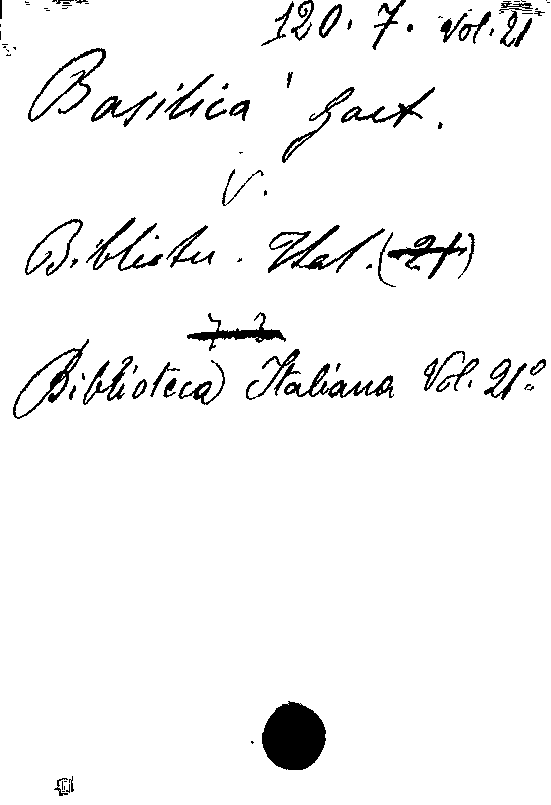 120. 7. Vol. 21
Basilica' Gaet.
V.
Bibliotec. Ital. (21)
7.3
Biblioteca Italiana Vol. 21º